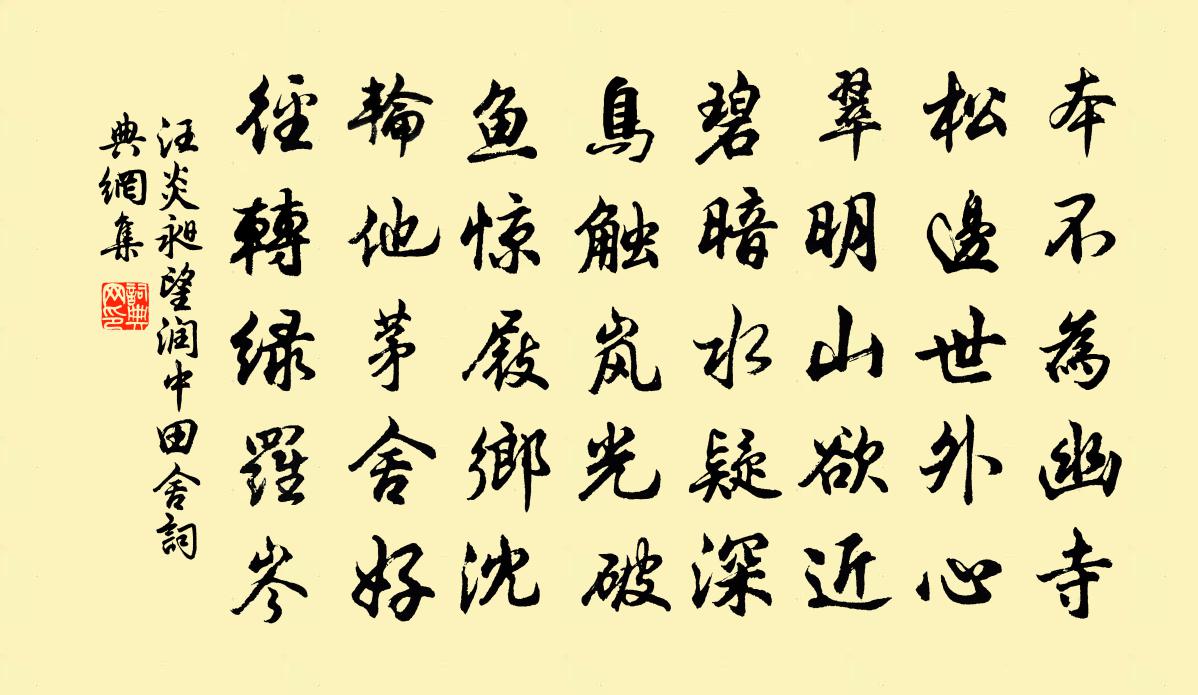 本不為幽寺
松邊世外心
翠明山欲近
碧暗水疑深
鳥触岚光破
鱼惊屐鄉沈
輪他茅舍好
徑轉绿羅岑
汪炎昶望润中田舍詞
典網集
詞典网印